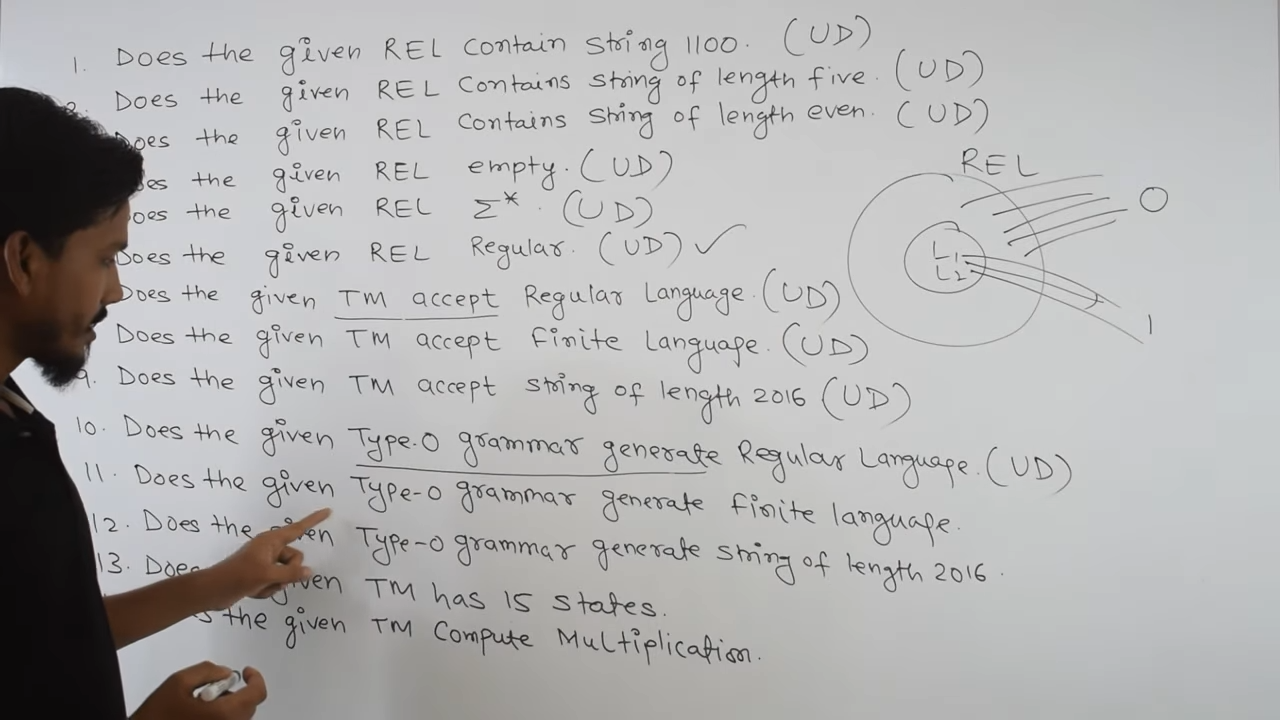 1. Does the given REL contain string 1100. (UD)
Does the given REL contains string of length five. (UD)
Does the given REL contains string of length even. (UD)
the given REL empty. (UD)
the given REL Σ*. (UD)
Does the given REL Regular. (UD) ✓
Does the given TM accept Regular Language. (UD)
Does the given TM accept finite Language. (UD)
9. Does the given TM accept string of length 2016 (UD)
10. Does the given Type-0 grammar generate Regular Language. (UD)
11. Does the given Type-0 grammar generate finite language.
12. Does the given Type-0 grammar generate string of length 2016.
13. given TM has 15 states.
the given TM Compute Multiplication.
REL
0
L1
L2
1